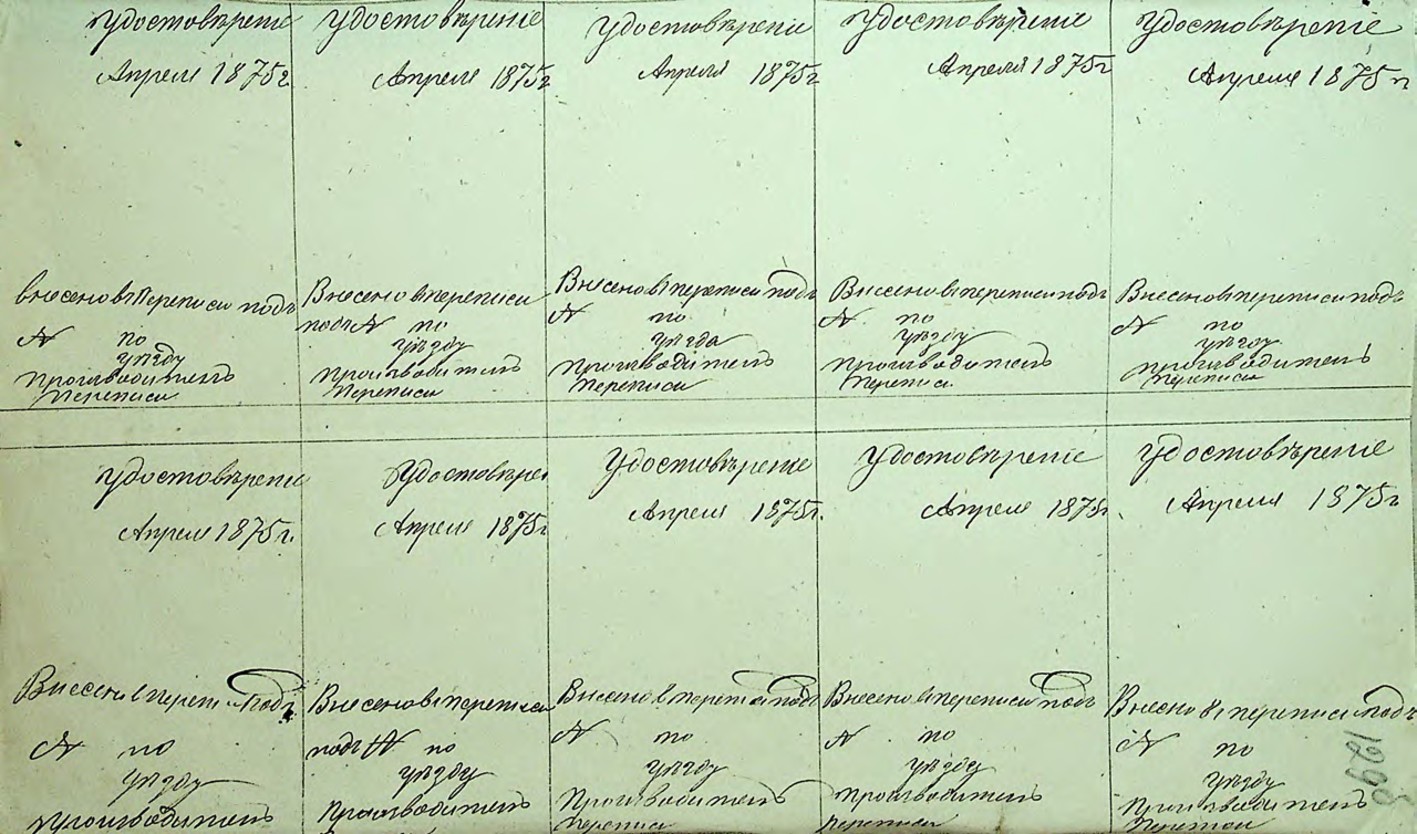 Удостовѣрение
Апреля 1875 г
внесено въ Переписи подъ
№ по
уѣзду
производитель
Переписи
Удостовѣреніе
Апреля 1875
Внесено въ переписи
подъ № по
уѣзду
производитель
Переписи
Удостовѣрение
Апреля 1875 г
Внесено въ переписи подъ
№ по
уѣзда
производитель
Переписи
Удостовѣреніе
Апреля 1875 г
Внесено въ переписи подъ
№ по
уѣзду
производитель
Переписи
Удостовѣреніе
Апреля 1875 г
Внесено въ переписи подъ
№ по
уѣзду
производитель
Переписи
Удостовѣрение
Апреля 1875 г.
Внесено в перепи подъ
№ по
уѣзду
производитель
Удостовѣрен
Апреля 1875 г
Внесено въ переписи
подъ № по
уѣзду
Производитель
Удостовѣрение
Апреля 1875 г.
Внесено в переписи подъ
№ по
уѣзду
Производитель
Переписи
Удостовѣреніе
Апреля 1875 г
Внесено въ переписи подъ
№ по
уѣзду
производитель
переписи
Удостовѣреніе
Апреля 1875 г
Внесено въ переписи подъ
№ по
уѣзду
Производитель
Переписи